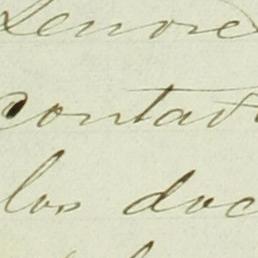 Senore
contad
los doc